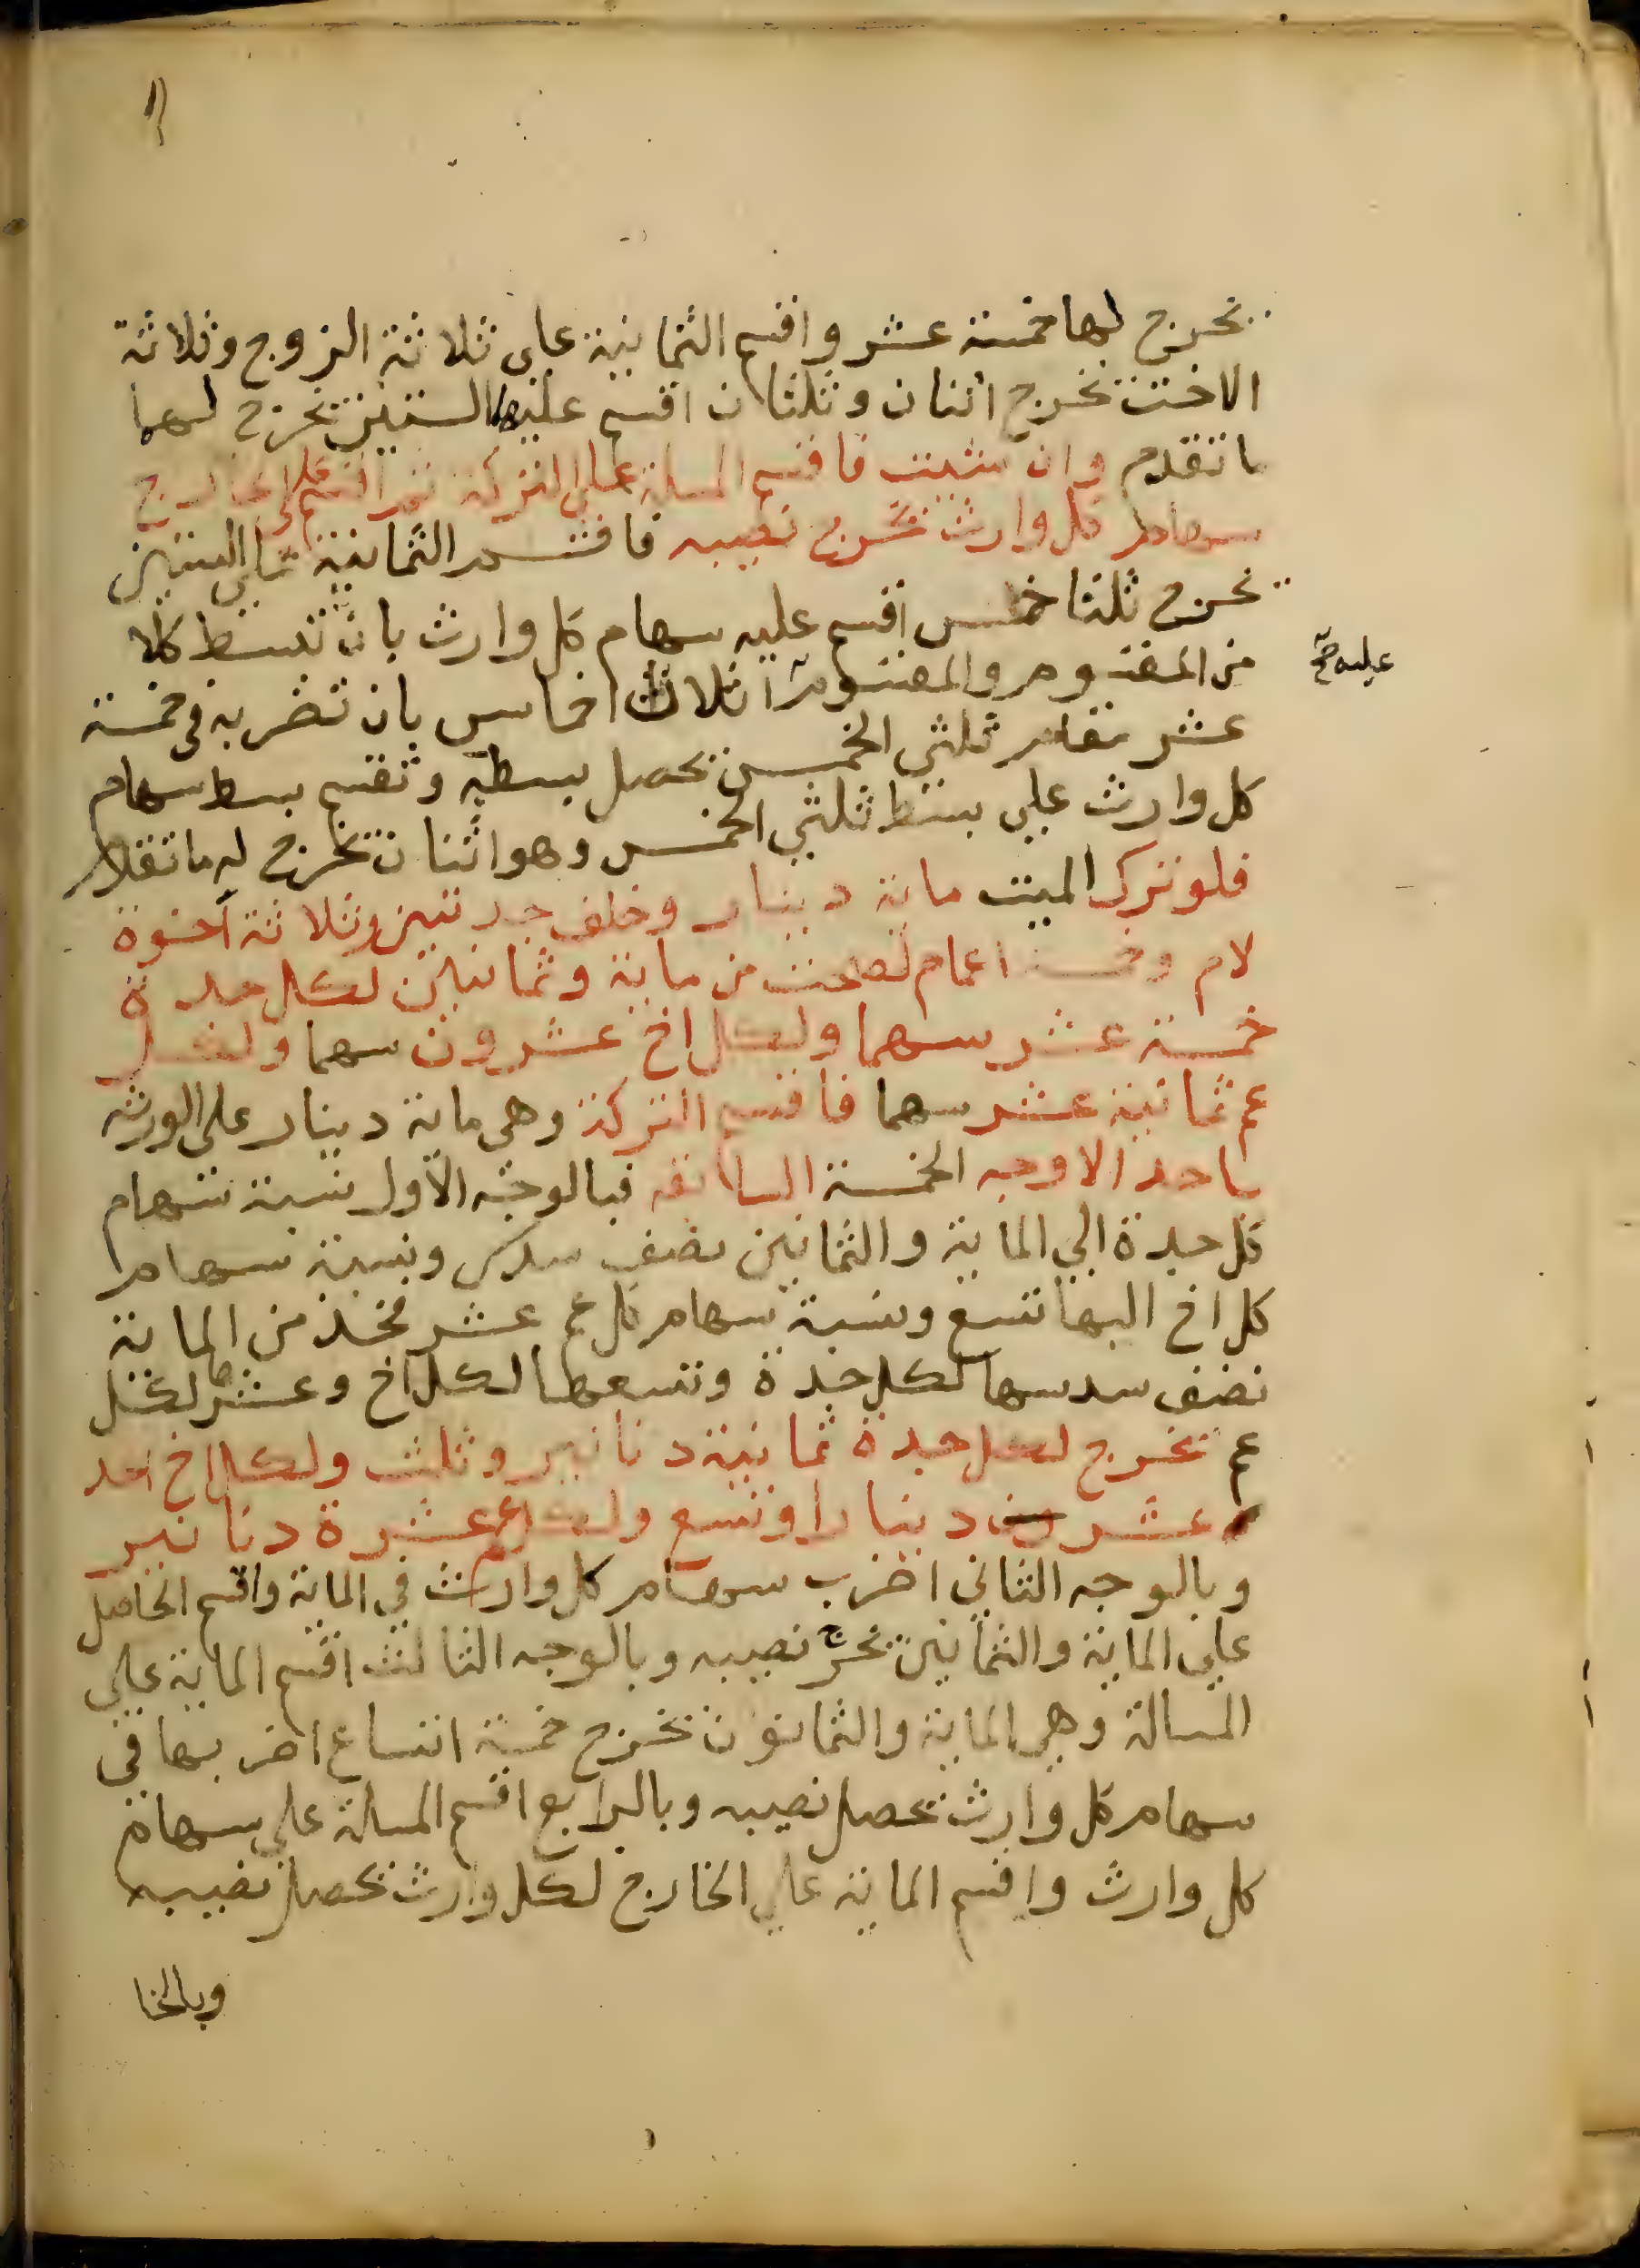 يخرج لها خمسة عشر واقسم الثمانية على ثلاثة الزوج وثلاثة
الاخت تخرج اثنان وثلثان اقسم عليها الستين تخرج لهما
ما تقدم وان شئت فاقسم المسلة على التركة ثم اقسم على الخارج
سهام كل وارث يخرج نصيبه فاقسم الثمانية على الستين
يخرج ثلثا خمس اقسم عليه سهام كل وارث بان تبسط كلا
من المقسوم والمقسوم اثلاث اخماس بان تضربه في خمسة
عليه صح
عشر مقام ثلثي الخمس يحصل بسطه وتقسم بسط سهام
كل وارث علي بسط ثلثي الخمس وهو اثنان يخرج له ما تقدم
فلو ترك الميت ماية دينار وخلف جدتين وثلاثة اخوة
لام وخمسة اعمام لصحت من ماية وثمانين لكل جدة
خمسة عشر سهما ولكل اخ عشرون سهما ولكل
عم ثمانية عشر سهما فاقسم التركة وهي ماية دينار على الورثه
باحد الاوجه الخمسة السالفه فبالوجه الاول نسبة سهام
كل جدة الي الماية والثمانين نصف سدس ونسبة سهام
كل اخ اليها تسع ونسبة سهام كل عم عشر فخذ من الماية
نصف سدسها لكل جدة وتسعها لكل اخ وعشرها لكل
عم يخرج لكل جدة ثمانية دنانير وثلث ولكل اخ احد
عشر دينارا وتسع ولكل عم عشرة دنانير
وبالوجه الثاني اضرب سهام كل وارث في الماية واقسم الحاصل
علي الماية والثمانين يخرج نصيبه وبالوجه الثالث اقسم الماية علي
المسالة وهي الماية والثمانون يخرج خمسة اتساع اضربها في
سهام كل وارث يحصل نصيبه وبالرابع اقسم المسالة على سهام
كل وارث واقسم الماية علي الخارج لكل وارث يحصل نصيبه
وبالخا